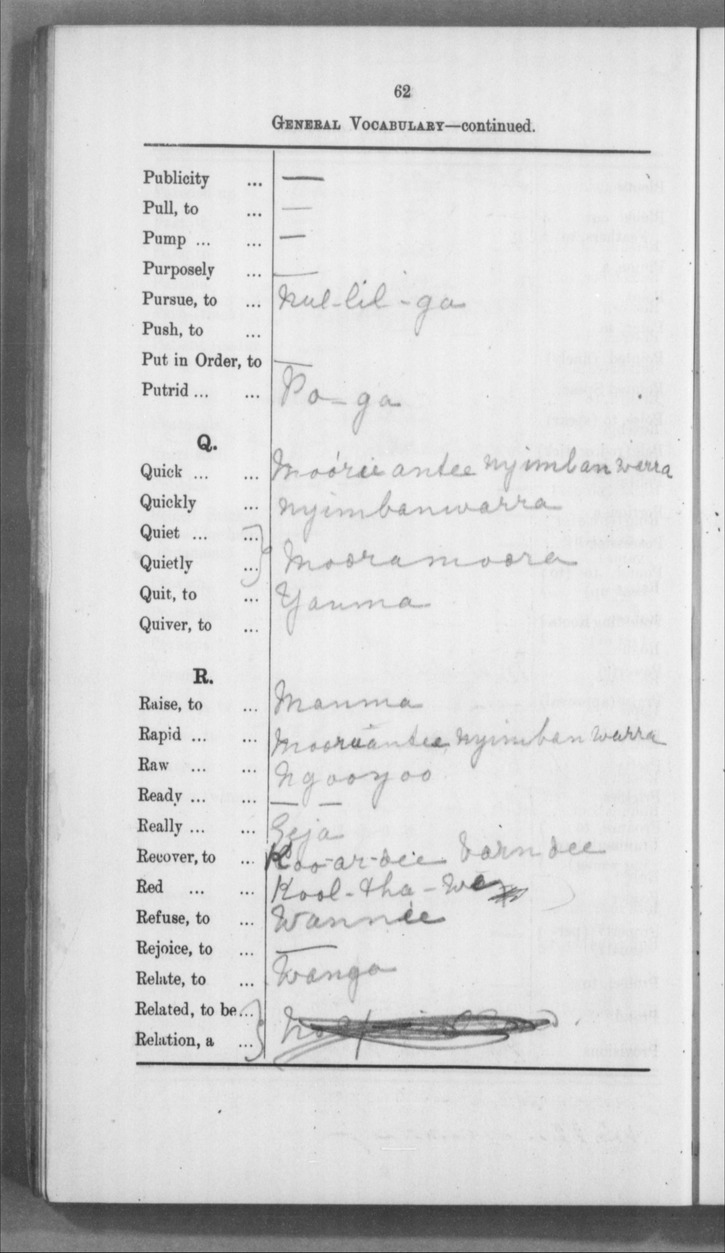 62
GENERAL VOCABULARY—continued.
Publicity ... —
Pull, to ... —
Pump ... ... —
Purposely ... —
Pursue, to ... nul-lil-ga
Push, to ...
Put in Order, to —
Putrid ... ... Po-ga
Q.
Quick ... ... moórie antee nyimbanwarra
Quickly ... nyimbanwarra
Quiet ... ...
Quietly ... mooramoora
Quit, to ... Yanma
Quiver, to ...
R.
Raise, to ... Manma
Rapid ... ... nyimbanwarra
Raw ... ... ngooyoo
Ready ... ... — —
Really ... ... Geja
Recover, to ... Koo-ar-dee barndee
Red ... ... Kool-tha-we
Refuse, to ... Wannee
Rejoice, to ... —
Relate, to ... Wanga
Related, to be...
Relation, a ...